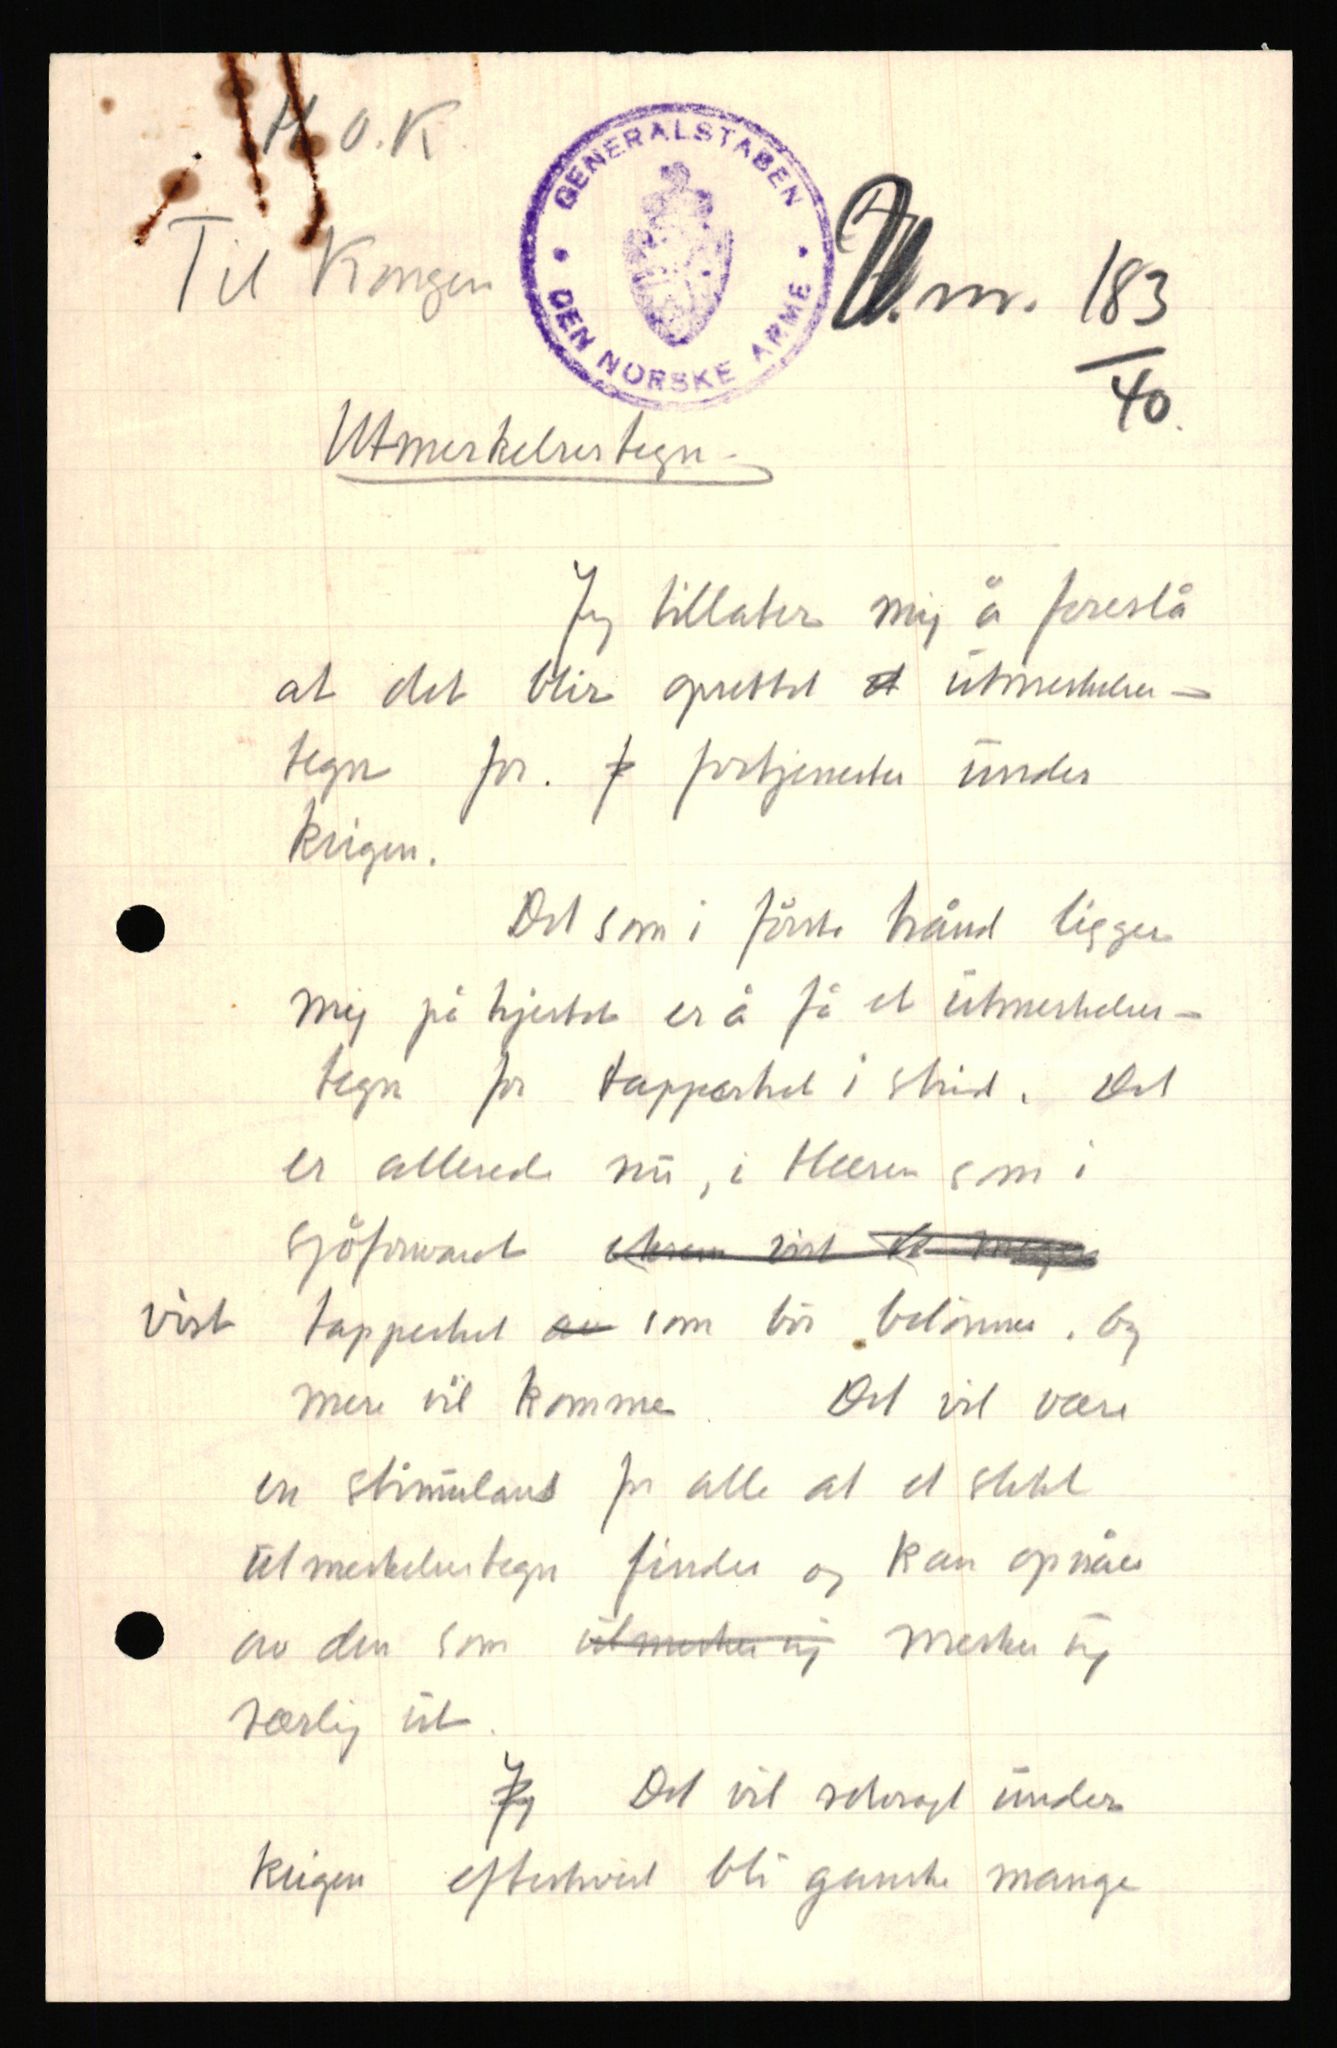 H.O.K.
GENERALSTABEN
DEN NORSKE ARME
Til Kongen
J.nr. 183
40.
Utmerkelsestegn.
Jeg tillater mig å foreslå
at det blir oprettet et utmerkelses-
tegn for. f fortjenester under
krigen.
Det som i første hånd ligger
mig på hjertet er å få et utmerkelses-
tegn for tapperhet i strid. Det
er allerede nu, i Hæren som i
sjøforsvaret vist
vist tapperhet av som bør belønnes. Og
mere vil komme. Det vil være
en stimulans for alle at et slikt
utmerkelsestegn findes og kan opnåes
av den som utmerker sig merker sig
særlig ut.
Jeg Det vil selvsagt under
krigen efterhvert bli ganske mange